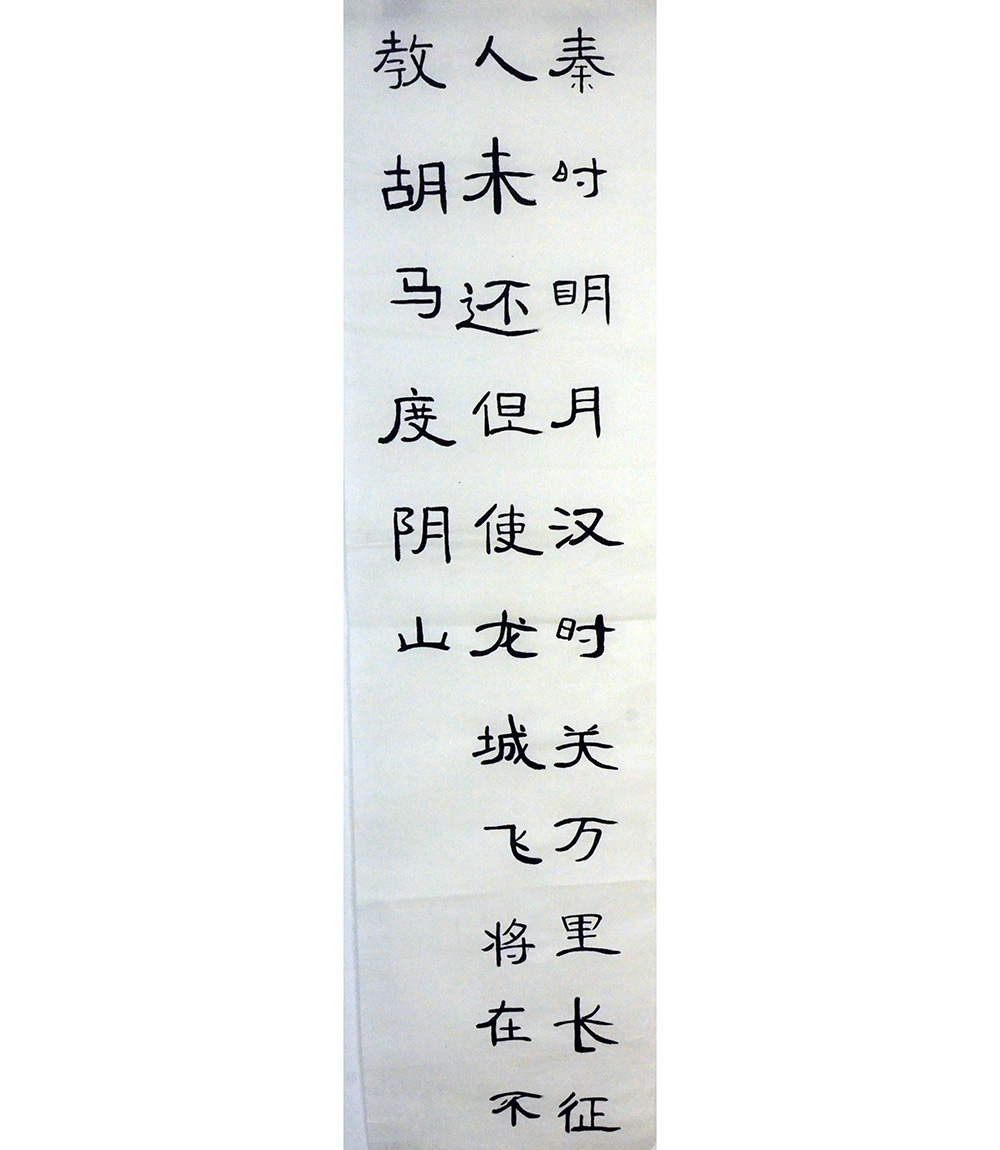 秦时明月汉时关万里长征
人未还但使龙城飞将在不
教胡马度阴山